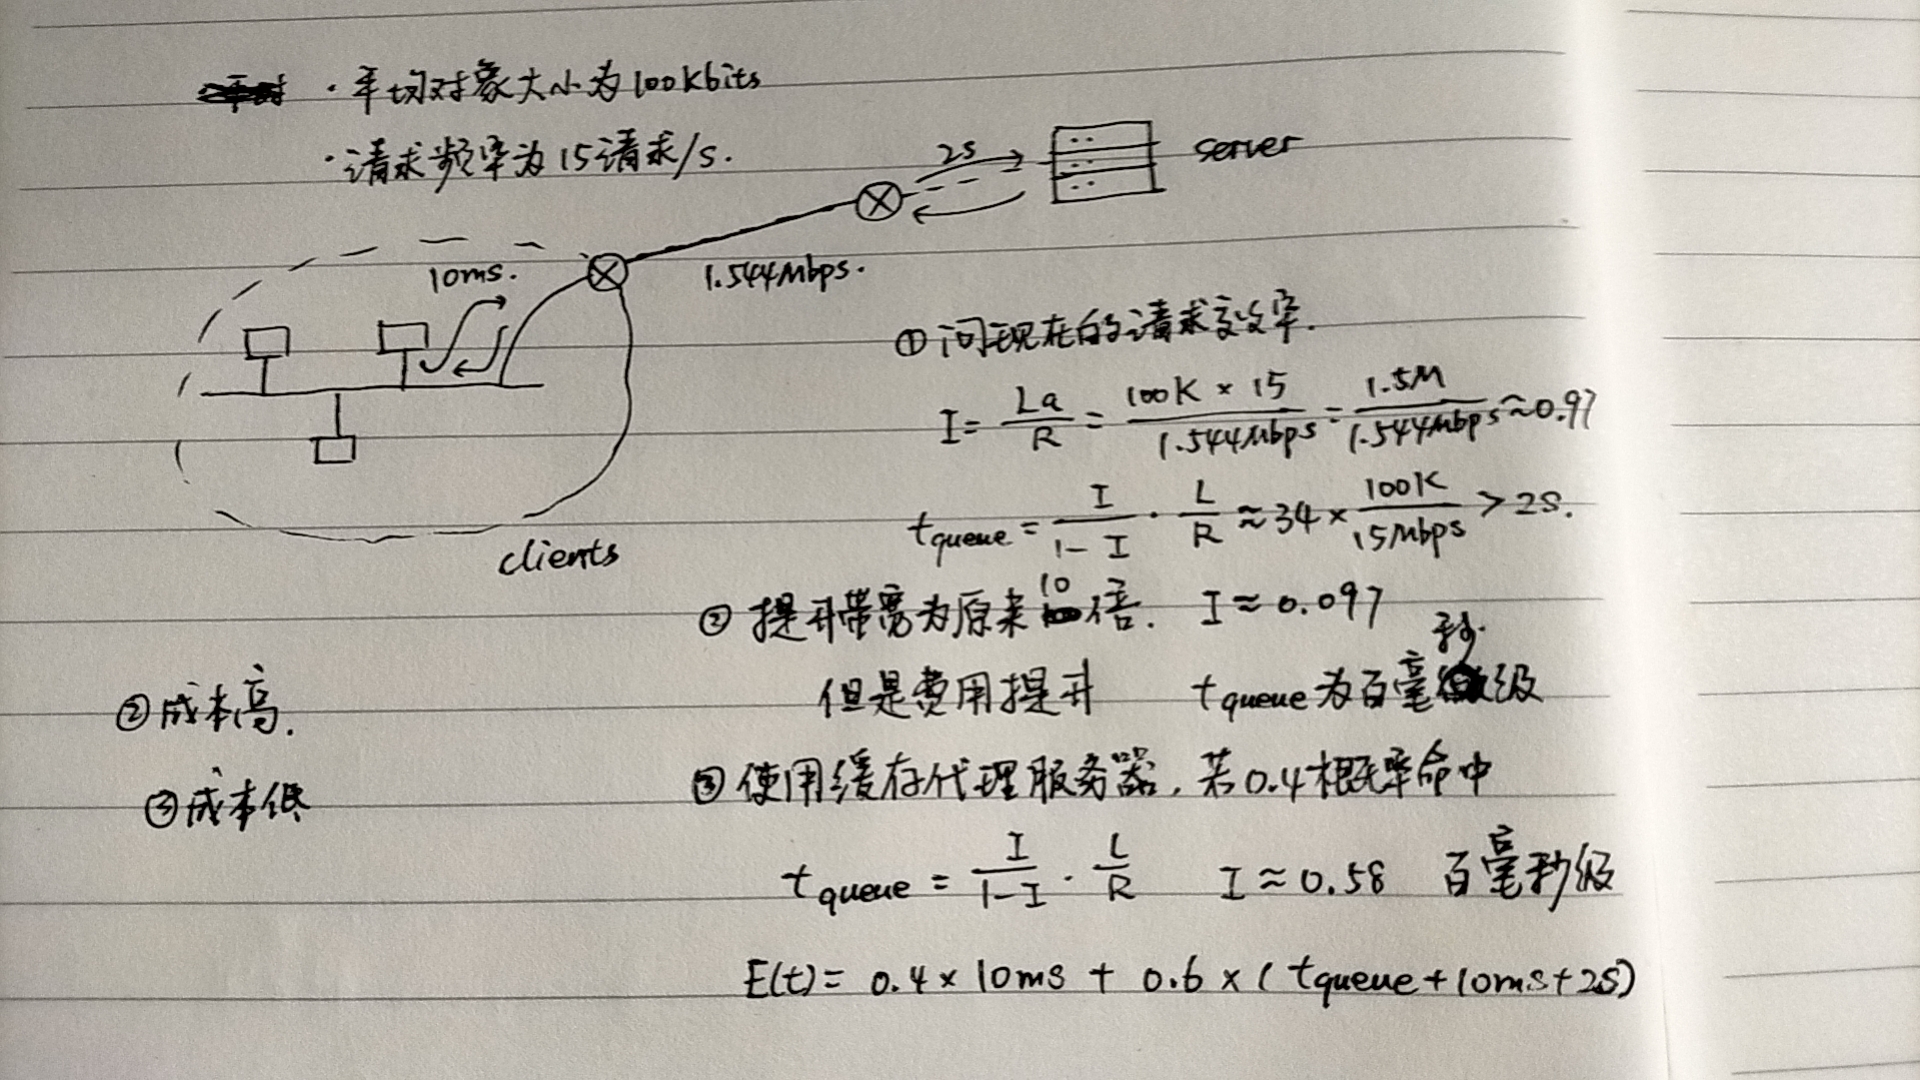 · 平均对象大小为100Kbits
· 请求频率为15请求/s.
2S
server
10ms.
1.544Mbps.
clients
① 问现在的请求效率.
I = La/R = 100K × 15/1.544Mbps = 1.5M/1.544Mbps ≈ 0.97
tqueue = I/1-I · L/R ≈ 34 × 100K/15Mbps > 2S.
② 提升带宽为原来10倍. I ≈ 0.097
但是费用提升 tqueue为百毫秒级
② 成本高.
③ 使用缓存代理服务器, 若0.4概率命中
③ 成本低
tqueue = I/1-I · L/R I ≈ 0.58 百毫秒级
E(t) = 0.4 × 10ms + 0.6 × ( tqueue + 10ms + 2S)